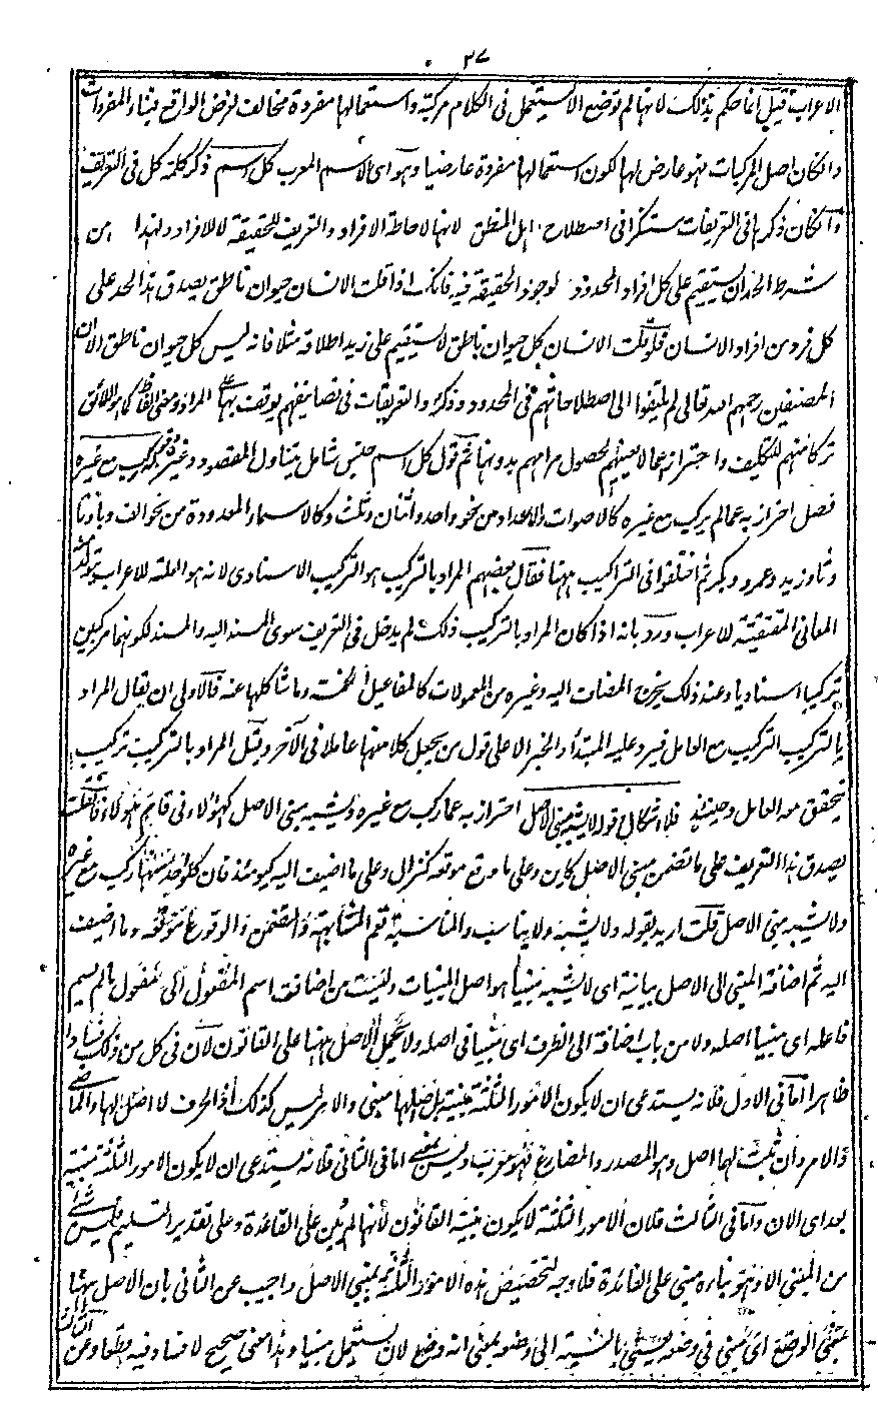 ٣٧
الاعراب قيل انما حكم بذلك لانها لم توضع الا لتستعمل فى الكلام مركبة واستعمالها مفردة مخالف لغرض الواضع فبناء المفردات
وان كان اصل المركبات فهو عارض لها لكون استعمالها مفردة عارضيا وهو اى الاسم المعرب كل اسم ذكر كلمة كل فى التعريف
وان كان ذكرها فى التعريفات مستنكرا فى اصطلاح اهل المنطق لانها لاحاطة الافراد والتعريف للحقيقة لا للافراد ولهذا من
شرط الحد ان يستقيم على كل افراد المحدود لوجود الحقيقة فيه فانك اذا قلت الانسان حيوان ناطق يصدق هذا الحد على
كل فرد من افراد الانسان فلو قلت الانسان كل حيوان ناطق لا يستقيم على زيد اطلاقه مثلا فانه ليس كل حيوان ناطق الا ان
المصنفين رحمهم الله تعالى لم يلتفتوا الى اصطلاحاتهم فى الحدود وذكر والتعريفات فى تصانيفهم يوقف بها على المراد ومعنى الفاظ كما هو اللائق
تركا منهم للتكليف واحترازا عما لا يعنيهم لحصول مرامهم بدونها ثم قول كل اسم جنس شامل يتناول المقصود وغيره مركب مع غيره
فصل احتراز به عما لم يركب مع غيره كالاصوات والاعداد من نحو واحد واثنان وثلث وكالاسماء المعدودة من نحو الف وبا وتا
وثا وزيد وعمرو وبكر ثم اختلفوا فى التراكيب ههنا فقال بعضهم المراد بالتركيب هو التركيب الاسنادى لانه هو العلة للاعراب
المعانى المقتضية للاعراب ورد بانه اذا كان المراد بالتركيب ذلك لم يدخل فى التعريف سوى المسند اليه والمسند لكونهما مركبين
تركيبا اسناديا وعند ذلك يخرج المضاف اليه وغيره من المعمولات كالمفاعيل الخمسة وما شاكلها عنه فالاولى ان يقال المراد
بالتركيب التركيب مع العامل فيرد عليه المبتدأ والخبر الا على قول من يجعل كلا منهما عاملا فى الآخر وقيل المراد بالتركيب تركيب
يتحقق معه العامل وحينئذ فلا اشكال قوله لا يشبه مبنى الاصل احتراز به عما ركب مع غيره ويشبه مبنى الاصل كهؤلاء فى قام هؤلاء فان قلت
يصدق هذا التعريف على ما تضمن مبنى الاصل كاين وعلى ما وقع موقعه كنزال وعلى ما اضيف اليه كيومئذ فان كل واحد منها ركب مع غيره
ولا يشبه مبنى الاصل قلت اريد بقوله ولا يشبه ولا يناسب والمناسبة تعم المشابهة والتضمن والوقوع موقعه وما اضيف
اليه ثم اضافة المبنى الى الاصل بيانية اى لا يشبه مبنيا هو اصل المبنيات وليست من اضافة اسم المفعول الى مفعول ما لم يسم
فاعله اى مبنيا اصله ولا من باب اضافة الى الظرف اى مبنيا فى اصله ولا يحمل الاصل ههنا على القانون لان فى كل من ذلك فسادا
ظاهرا اما فى الاول فلانه يستدعى ان لا يكون الامور الثلثة مبنية بل اصلها مبنى والامر ليس كذلك اذ الحرف لا اصل لها والماضى
والامر وان ثبت لهما اصل وهو المصدر والمضارع فهو معرب وليس بمبنى اما فى الثانى فلانه يستدعى ان لا يكون الامور الثلثة مبنية
بعد اى الان واما فى الثالث فلان الامور الثلثة لا يكون مبنية القانون لانها لم يبن على القاعدة وعلى تقدير التسليم فليس شئ
من المبنى الا وهو بناءه مبنى على القاعدة فلا وجه لتخصيص هذه الامور الثلثة بمبنى الاصل واجيب عن الثانى بان الاصل ههنا
بمعنى الوضع اى مبنى فى وضعه بالنسبة الى وضعه بمعنى انه وضع لان يستعمل مبنيا وهذا معنى صحيح لا فساد فيه قطعا وعن